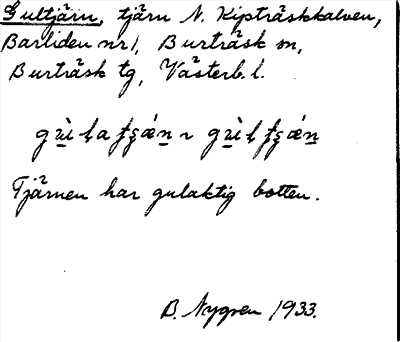 Gultjärn, tjärn N. Kipträskkalven,
Barliden nr 1, Burträsk sn,
Burträsk tg, Västerb. l.
Tjärnen har gulaktig botten.
B. Nygren 1933.